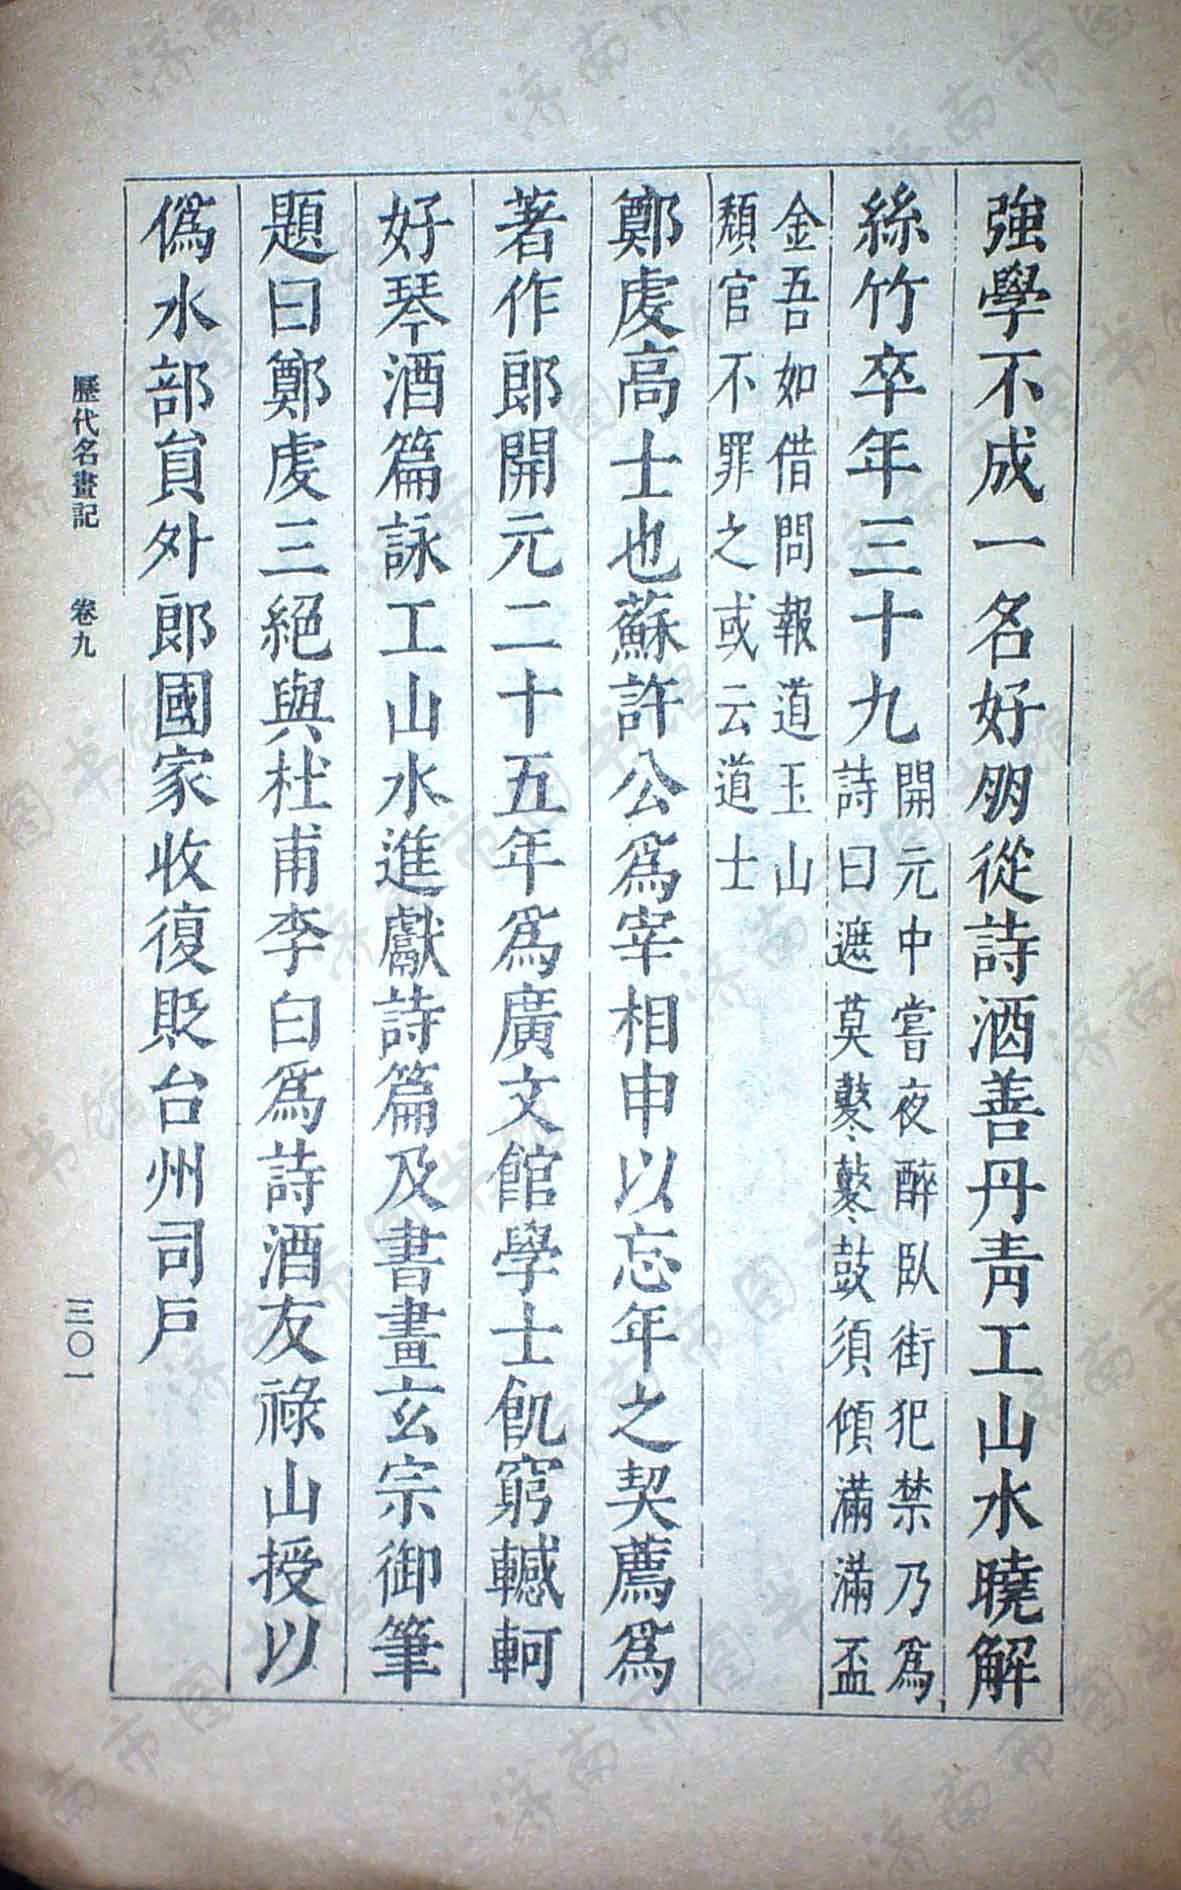 強學不成一名好朋從詩酒善丹青工山水曉解
絲竹卒年三十九
開元中嘗夜醉臥街犯禁乃爲
詩曰遮莫鼕鼕鼓須傾滿滿盃
金吾如借問報道玉山
頽官不罪之或云道士
鄭虔高士也蘇許公爲宰相申以忘年之契薦爲
著作郎開元二十五年爲廣文館學士飢窮轗軻
好琴酒篇詠工山水進獻詩篇及書畫玄宗御筆
題曰鄭虔三絕與杜甫李白爲詩酒友祿山授以
僞水部貟外郎國家收復貶台州司戶
歷代名畫記 卷九 三〇一
济南市图书馆